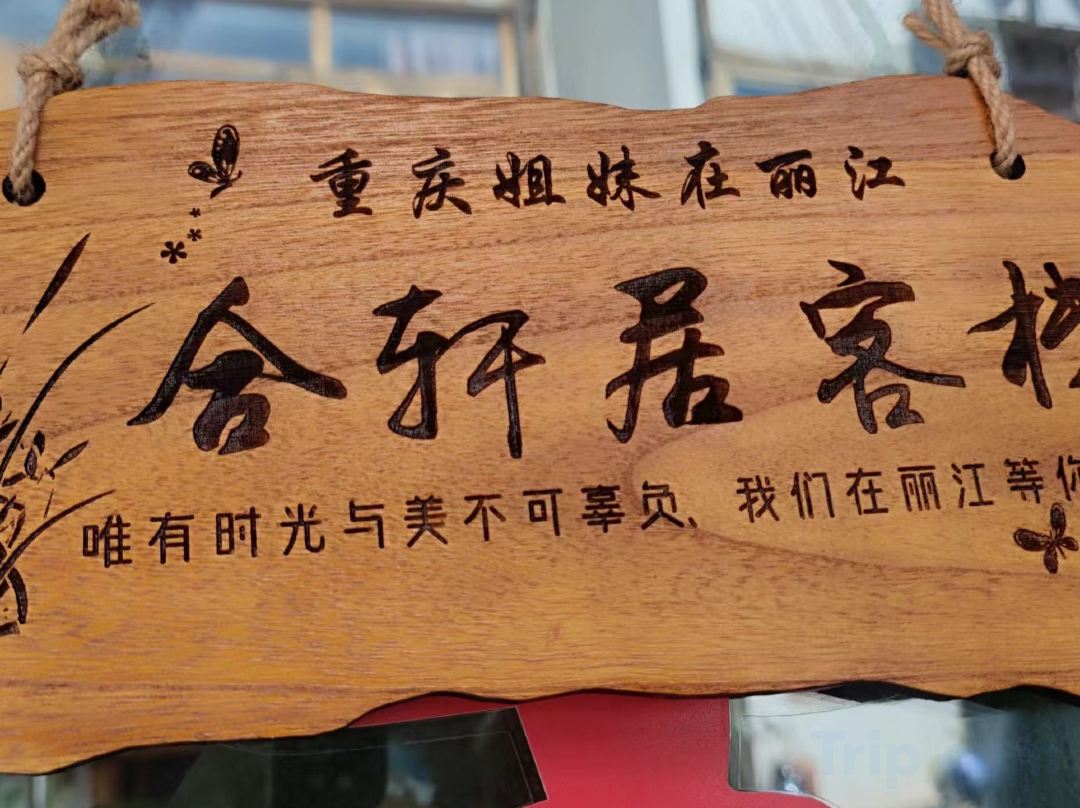 重庆姐妹在丽江
舍轩居客栈
唯有时光与美不可辜负、我们在丽江等你
Trip.com